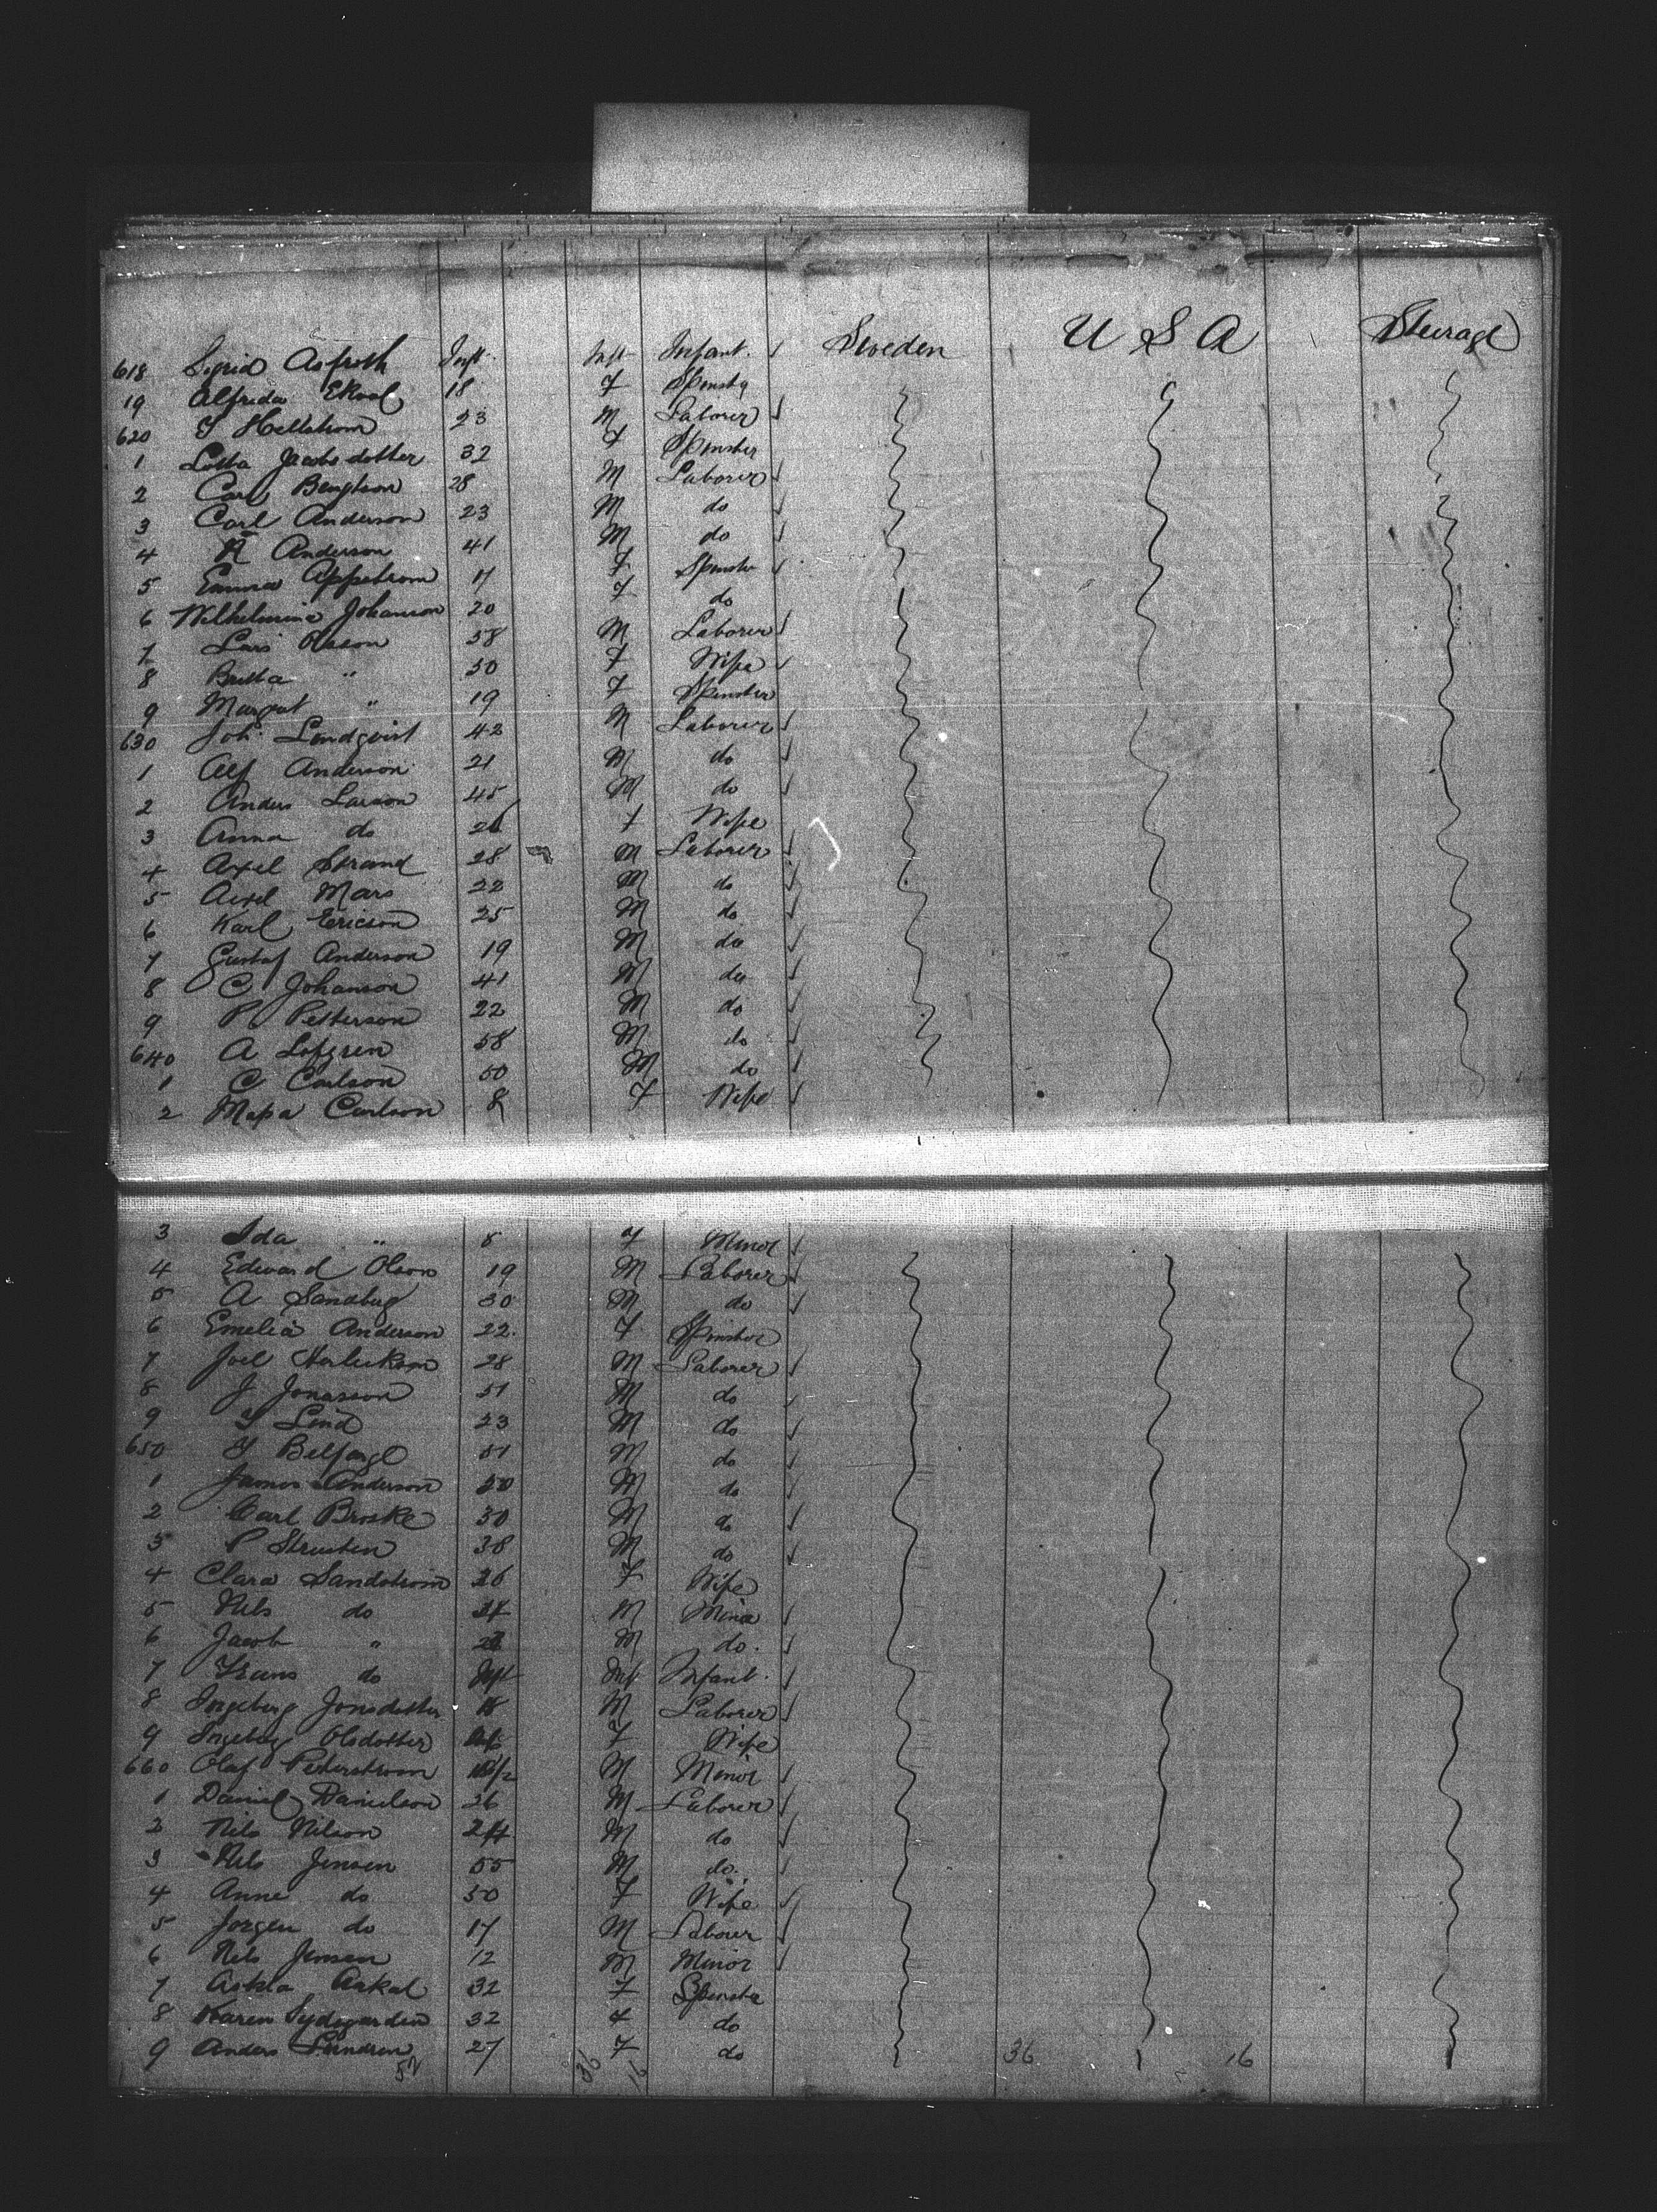 618 Sigrid Asproth Inft. Inft Infant. Sweden U S A Steerage
19 Alfrida Ekval 18 F Spinstr
620 J Hellstrom 23 M Laborer
1 Lotta Jacobsdotter 32 F Spinster
2 Carl Bengtson 28 M Laborer
3 Carl Anderson 23 M do
4 A Anderson 41 M do
5 Emma Appelstrom 17 F Spinstr
6 Wilhelmina Johanson 20 F do
7 Lars Olsson 58 M Laborer
8 Britta " 50 F Wife
9 Margret " 19 F Spinster
630 Joh. Lindqvist 42 M Laborer
1 Alf Anderson 21 M do
2 Anders Larson 45 M do
3 Anna do 26 F Wife
4 Axel Strand 28 M Laborer
5 Axel Mars 22 M do
6 Karl Ericson 25 M do
7 Gustaf Anderson 19 M do
8 C Johanson 41 M do
9 P Petterson 22 M do
640 A Lofgren 58 M do
1 C Carlson 50 M do
2 Carlson F Wife
3 Ida " 8 F Minor
4 Edward Olson 19 M Laborer
5 A Sandbug 30 M do
6 Emelia Anderson 22 F Spinster
7 Joel 28 M Laborer
8 J Jonasson 51 M do
9 Lind 23 M do
650 Belfage 51 M do
1 James Anderson 50 M do
2 Carl Broske 30 M do
3 P 38 M do
4 Clara Sandstrom 26 F Wife
5 Nils do M Minor
6 Jacob " M do.
7 Frans do Inft Inft Infant.
8 Ingeborg Jonsdotter 18 M Laborer
9 Ingeborg Olsdotter F Wife
660 Olaf Peterstrom M Minor
1 Daniel Danielson 26 M Laborer
2 Nils Nilson 24 M do
3 Nils Jensen 55 M do.
4 Anne do 50 F Wife
5 Jorgen do 17 M Laborer
6 Nils Jensen 12 M Minor
7 Askla Askal 32 F Spinster
8 Karen 32 F do
9 Anders 27 F do
52 36 16 36 16